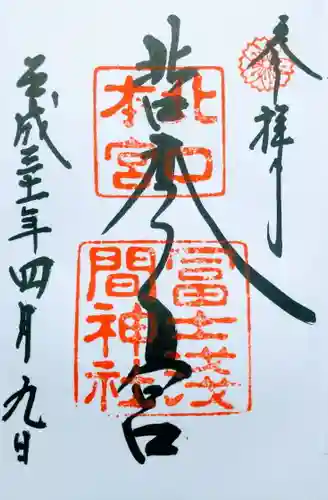 奉拝
北口本宮
北口
本宮
冨士浅
間神社
平成三十一年四月九日